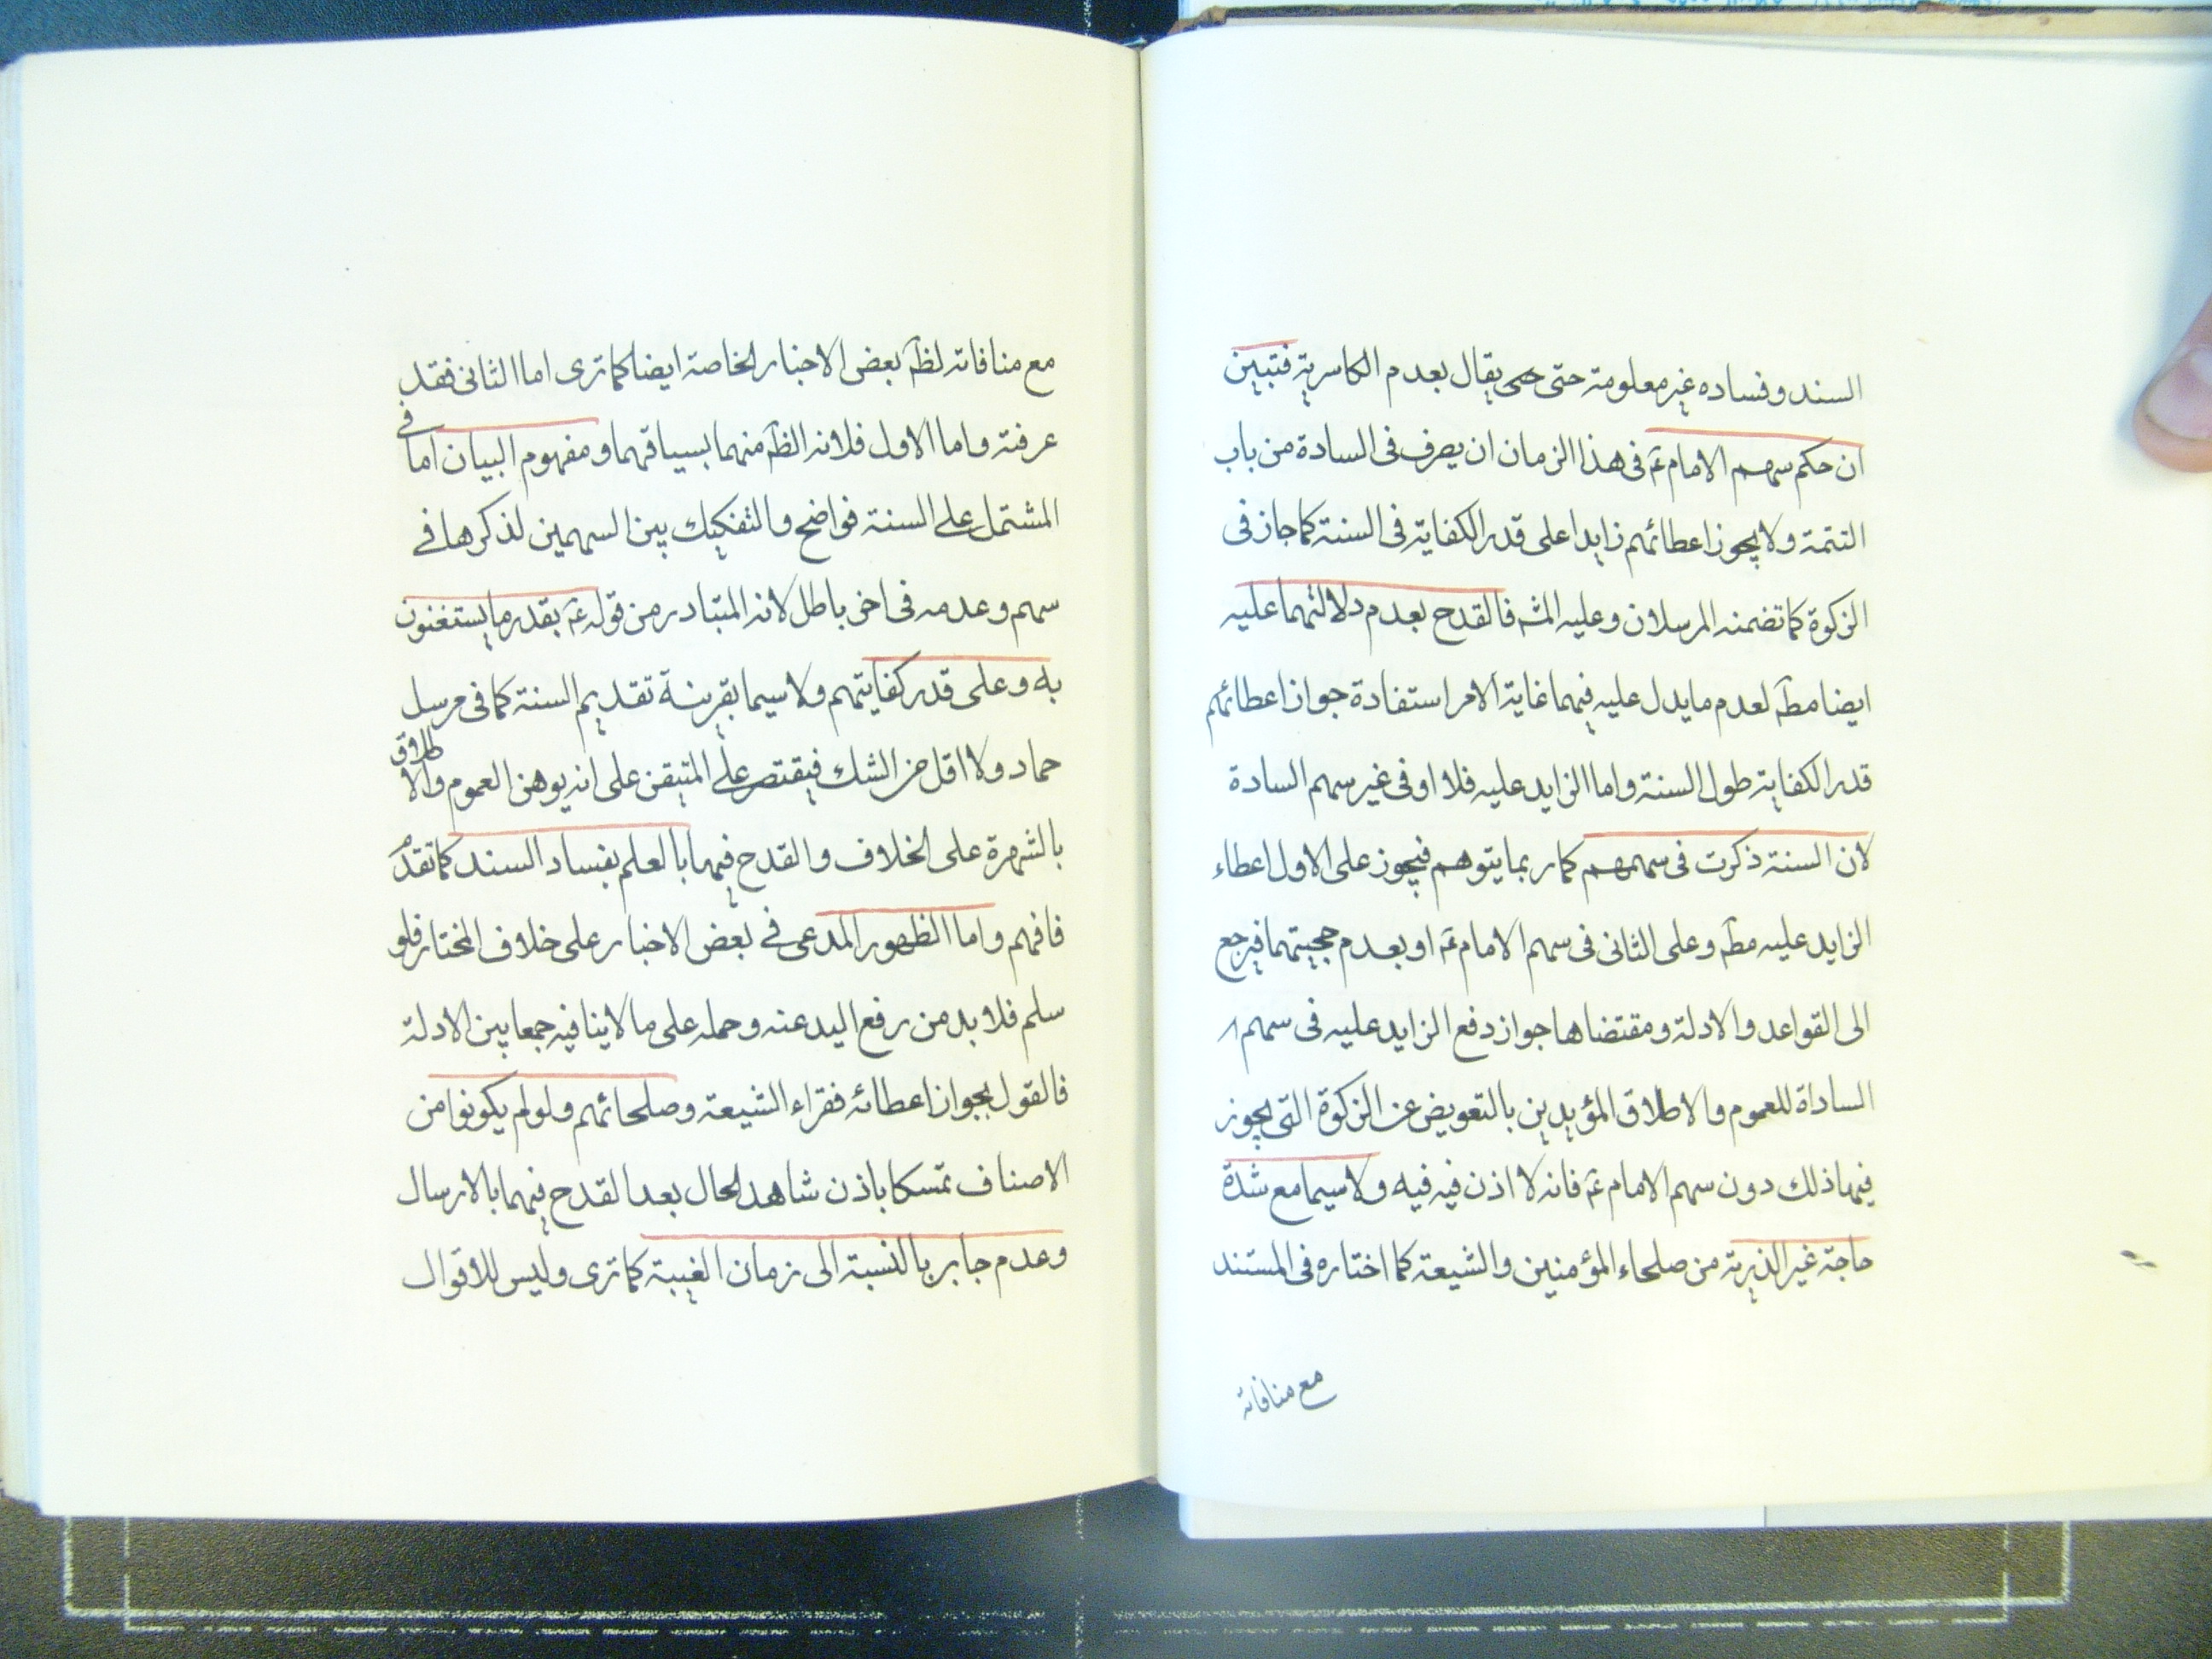 السند وفساده غير معلومة حتى يقال بعدم الكاسرية فتبين
ان حكم سهم الامام ع في هذا الزمان ان يصرف في السادة من باب
التتمة ولا يجوز اعطائهم زايدا على قدر الكفاية في السنة كما جاز في
الزكوة كما تضمنه المرسلان وعليه المش فالقدح بعدم دلالتهما عليه
ايضا مطآ لعدم ما يدل عليه فيهما غاية الامر استفادة جواز اعطائهم
قدر الكفاية طول السنة واما الزايد عليه فلا او في غير سهم السادة
لان السنة ذكرت في سهمهم كما ربما يتوهم فيجوز على الاول اعطاء
الزايد عليه مطآ وعلى الثاني في سهم الامام ع او بعدم حجيتهما فيرجع
الى القواعد والادلة ومقتضاها جواز دفع الزايد عليه في سهم
الساداة للعموم والاطلاق المؤيدين بالتعويض عن الزكوة التي يجوز
فيها ذلك دون سهم الامام ع فانه لا اذن فيه فيه ولا سيما مع شدة
حاجة غير الذرية من صلحاء المؤمنين والشيعة كما اختاره في المستند
مع منافاته
مع منافاته لظآ بعض الاخبار الخاصة ايضا كما ترى اما الثاني فقد
عرفته واما الاول فلانه الظآ منهما بسياقهما ومفهوم البيان اما في
المشتمل على السنة فواضح والتفكيك بين السهمين لذكرها في
سهم وعدمه في اخر باطل لانه المتبادر من قوله ع بقدر ما يستغنون
به وعلى قدر كفايتهم ولا سيما بقرينة تقديم السنة كما في مرسل
حماد ولا اقل من الشك فيقتصر على المتيقن على انه يوهن العموم والاطلاق
بالشهرة على الخلاف والقدح فيها بالعلم بفساد السند كما تقدم
فافهم واما الظهور المدعى في بعض الاخبار على خلاف المختار فلو
سلم فلا بد من رفع اليد عنه وحمله على ما لا ينافيه جمعا بين الادلة
فالقول بجواز اعطائه فقراء الشيعة وصلحائهم ولو لم يكونوا من
الاصناف تمسكا باذن شاهد الحال بعد القدح فيهما بالارسال
وعدم جابر بالنسبة الى زمان الغيبة كما ترى وليس للاقوال